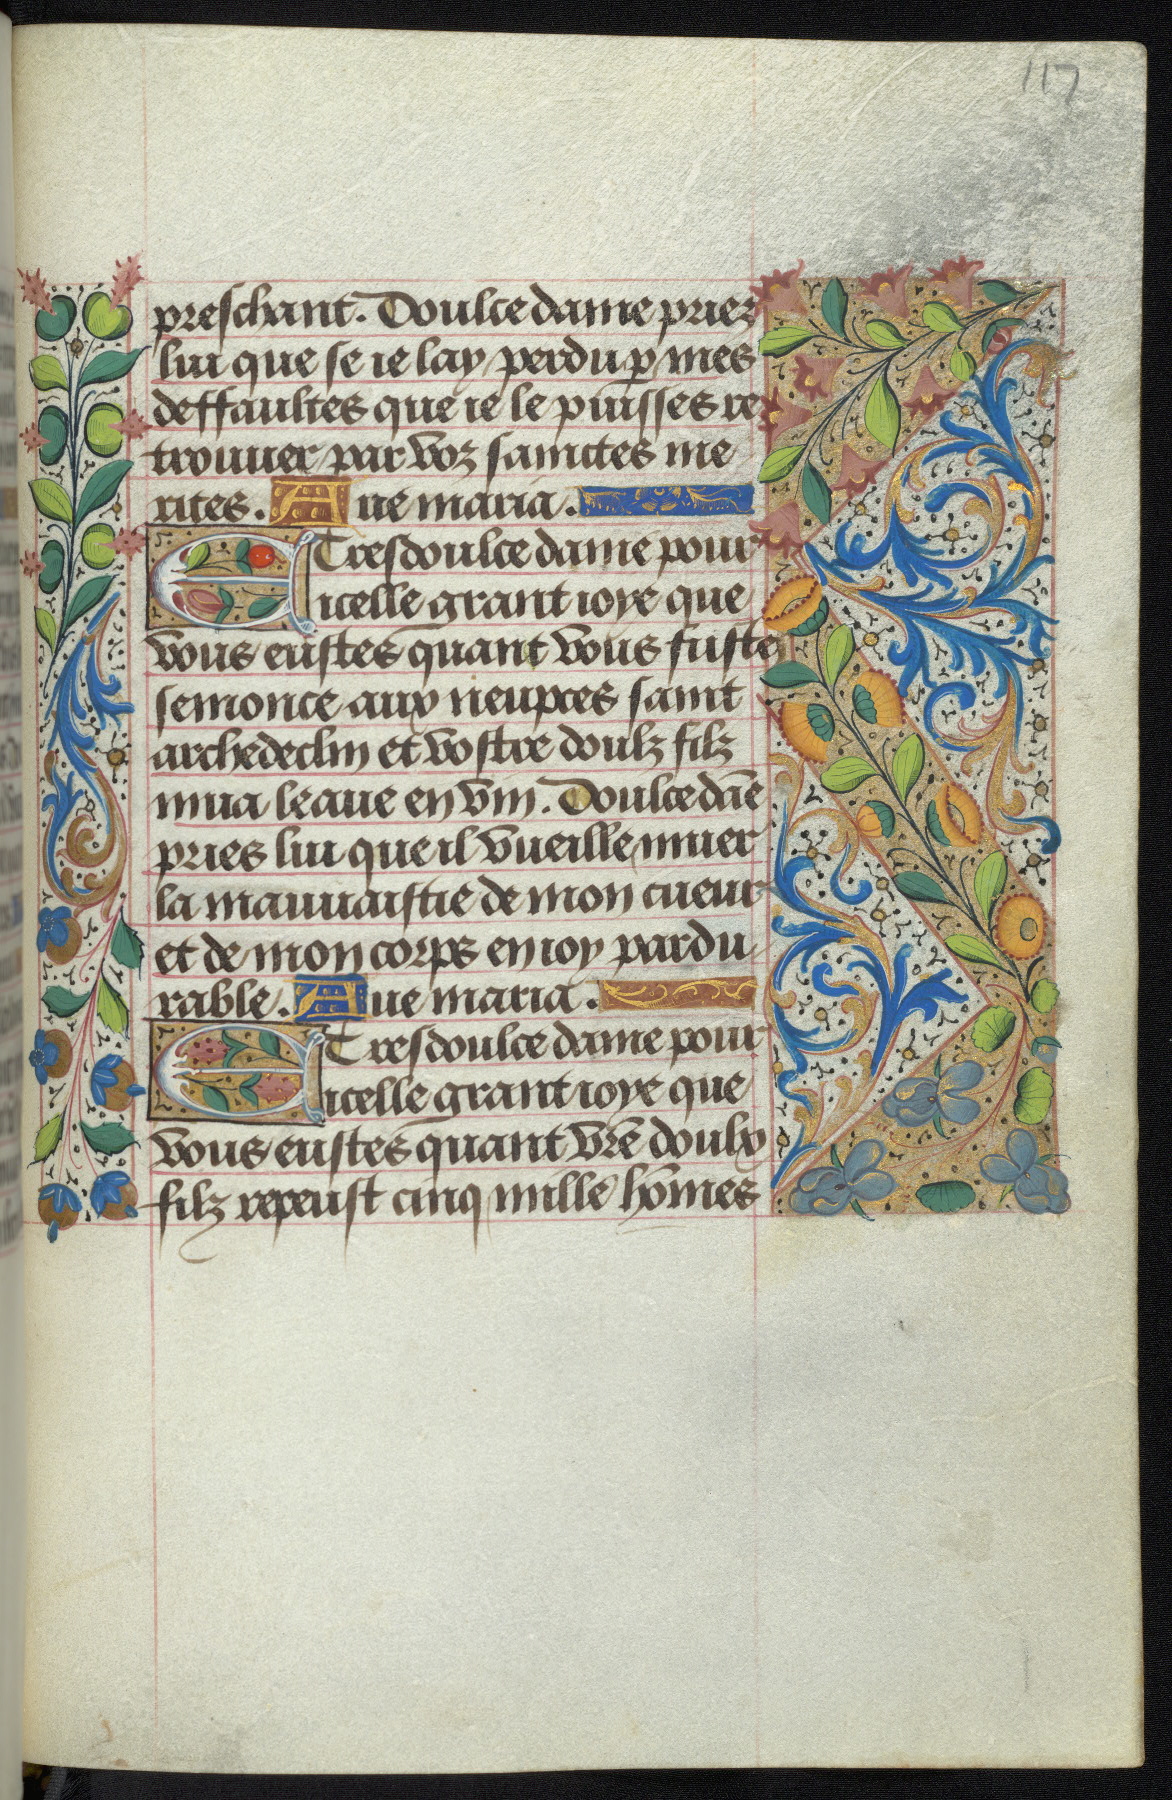 117
preschant. Doulce dame priez
lui que se ie lay perdu p̱ mes
deffaultes que ie le puisses re
trouuer par voz sainctes me
rites. Aue maria.
E Tresdoulce dame pour
icelle grant ioye que
vous eustes quant vous fustes
semonce aux neupces saint
archedeclin et vostre doulz filz
mua leaue en vin. Doulce dāe
pries lui que il vueille muer
la mauuaistie de mon cueur
et de mon corps en ioy pardu
rable. Aue maria.
E Tresdoulce dame pour
icelle grant ioye que
vous eustes quant vr̄e doulx
filz repeust cinq mille hōmes